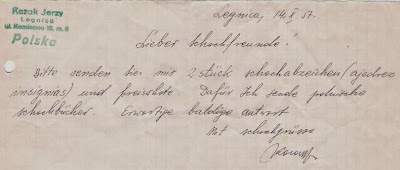 Kozak Jerzy
Legnica
ul. Kamienna 18. m. 8
Polska
Legnica, 14.X.57.
Lieber Schachfreunde!
Bitte senden Sie mir 2 stück schachabzeichen (ajedrez
insignias) und prospekte. Dafür Ich sende polnische
schachbücher. Erwartige baldige antwort
Mit schachgrüsse